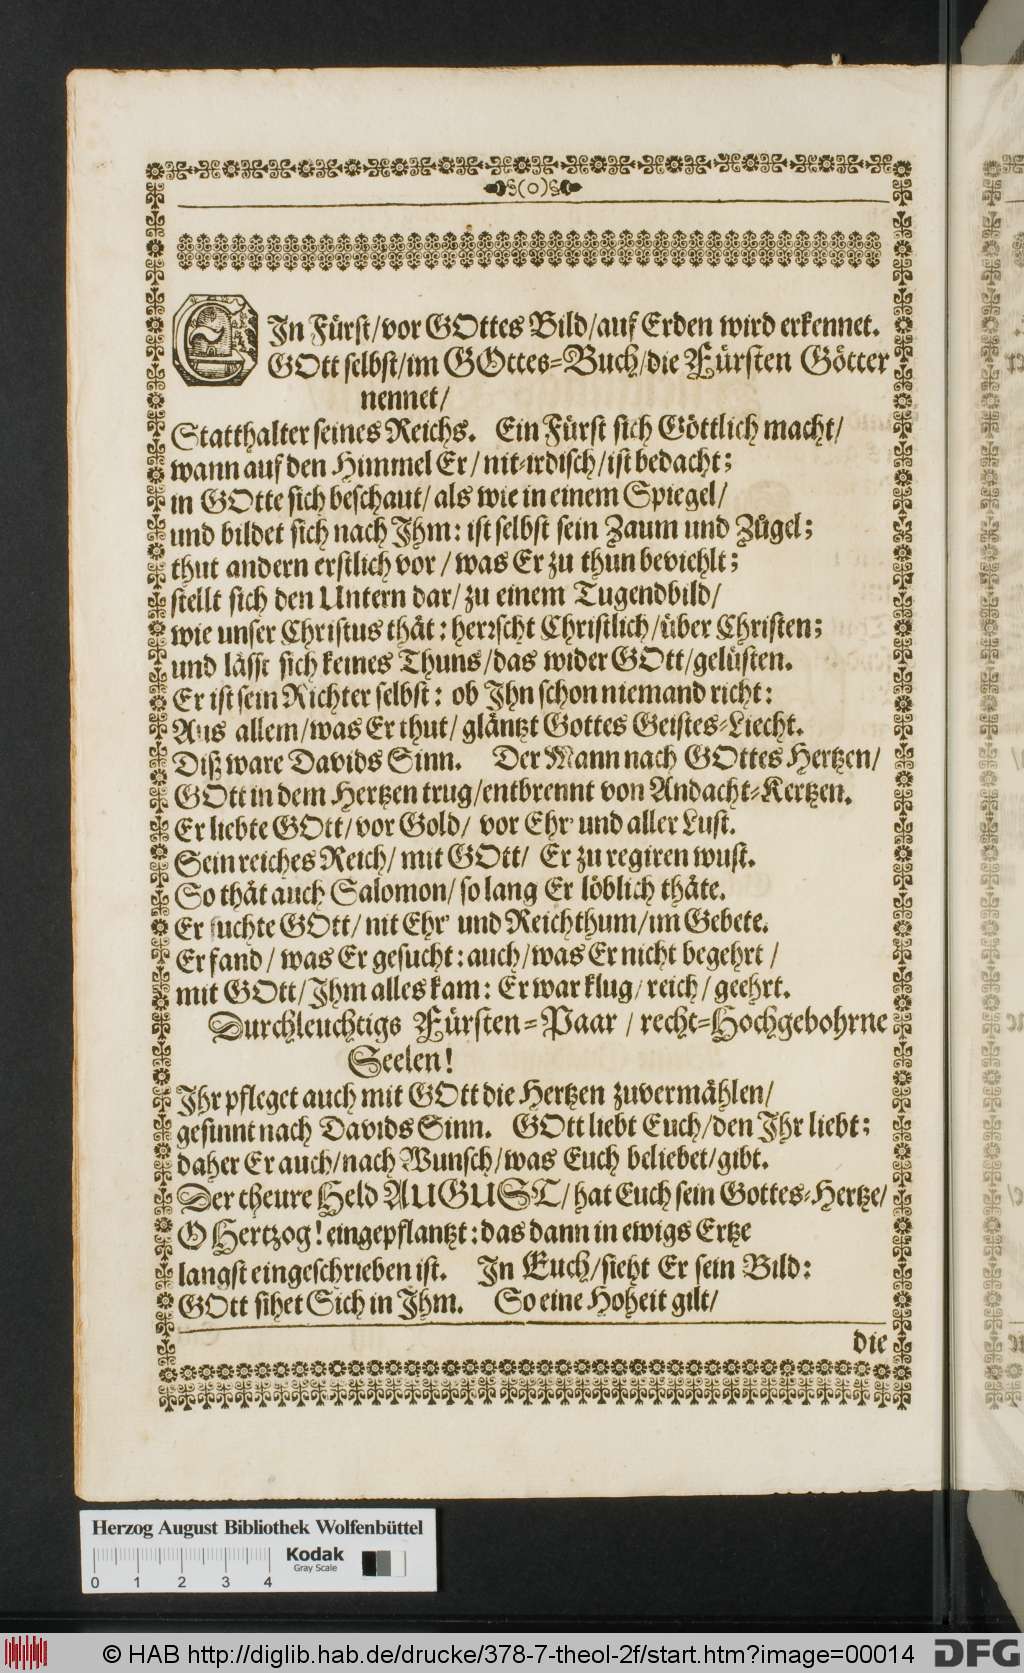 §(o)§
EIn Fürst/vor GOttes Bild/auf Erden wird erkennet.
GOtt selbst/im GOttes=Buch/die Fürsten Götter
nennet/
Statthalter seines Reichs. Ein Fürst sich Göttlich macht/
wann auf den Himmel Er/nit=irdisch/ist bedacht;
in GOtte sich beschaut/als wie in einem Spiegel/
und bildet sich nach Ihm: ist selbst sein Zaum und Zügel;
thut andern erstlich vor/was Er zu thun beviehlt;
stellt sich den Untern dar/zu einem Tugendbild/
wie unser Christus thät: herrscht Christlich/über Christen;
und lässt sich keines Thuns/das wider GOtt/gelüsten.
Er ist sein Richter selbst: ob Ihn schon niemand richt:
Aus allem/was Er thut/gläntzt Gottes Geistes=Liecht.
Diß ware Davids Sinn. Der Mann nach GOttes Hertzen/
GOtt in dem Hertzen trug/entbrennt von Andacht=Kertzen.
Er liebte GOtt/vor Gold/vor Ehr' und aller Lust.
Sein reiches Reich/mit GOtt/Er zu regiren wust.
So thät auch Salomon/so lang Er löblich thäte.
Er suchte GOtt/nit Ehr' und Reichthum/im Gebete.
Er fand/was Er gesucht: auch/was Er nicht begehrt/
mit GOtt/Ihm alles kam: Er war klug/reich/geehrt.
Durchleuchtigs Fürsten=Paar/recht=Hochgebohrne
Seelen!
Ihr pfleget auch mit GOtt die Hertzen zuvermählen/
gesinnt nach Davids Sinn. GOtt liebt Euch/den Ihr liebt;
daher Er auch/nach Wunsch/was Euch beliebet/gibt.
Der theure Held AUGUST/hat Euch sein Gottes=Hertze/
O Hertzog! eingepflantzt: das dann in ewigs Ertze
langst eingeschrieben ist. In Euch/sieht Er sein Bild:
GOtt sihet Sich in Ihm. So eine Hoheit gilt/
die
Herzog August Bibliothek Wolfenbüttel
Kodak
Gray Scale
0 1 2 3 4
© HAB http://diglib.hab.de/drucke/378-7-theol-2f/start.htm?image=00014
DFG